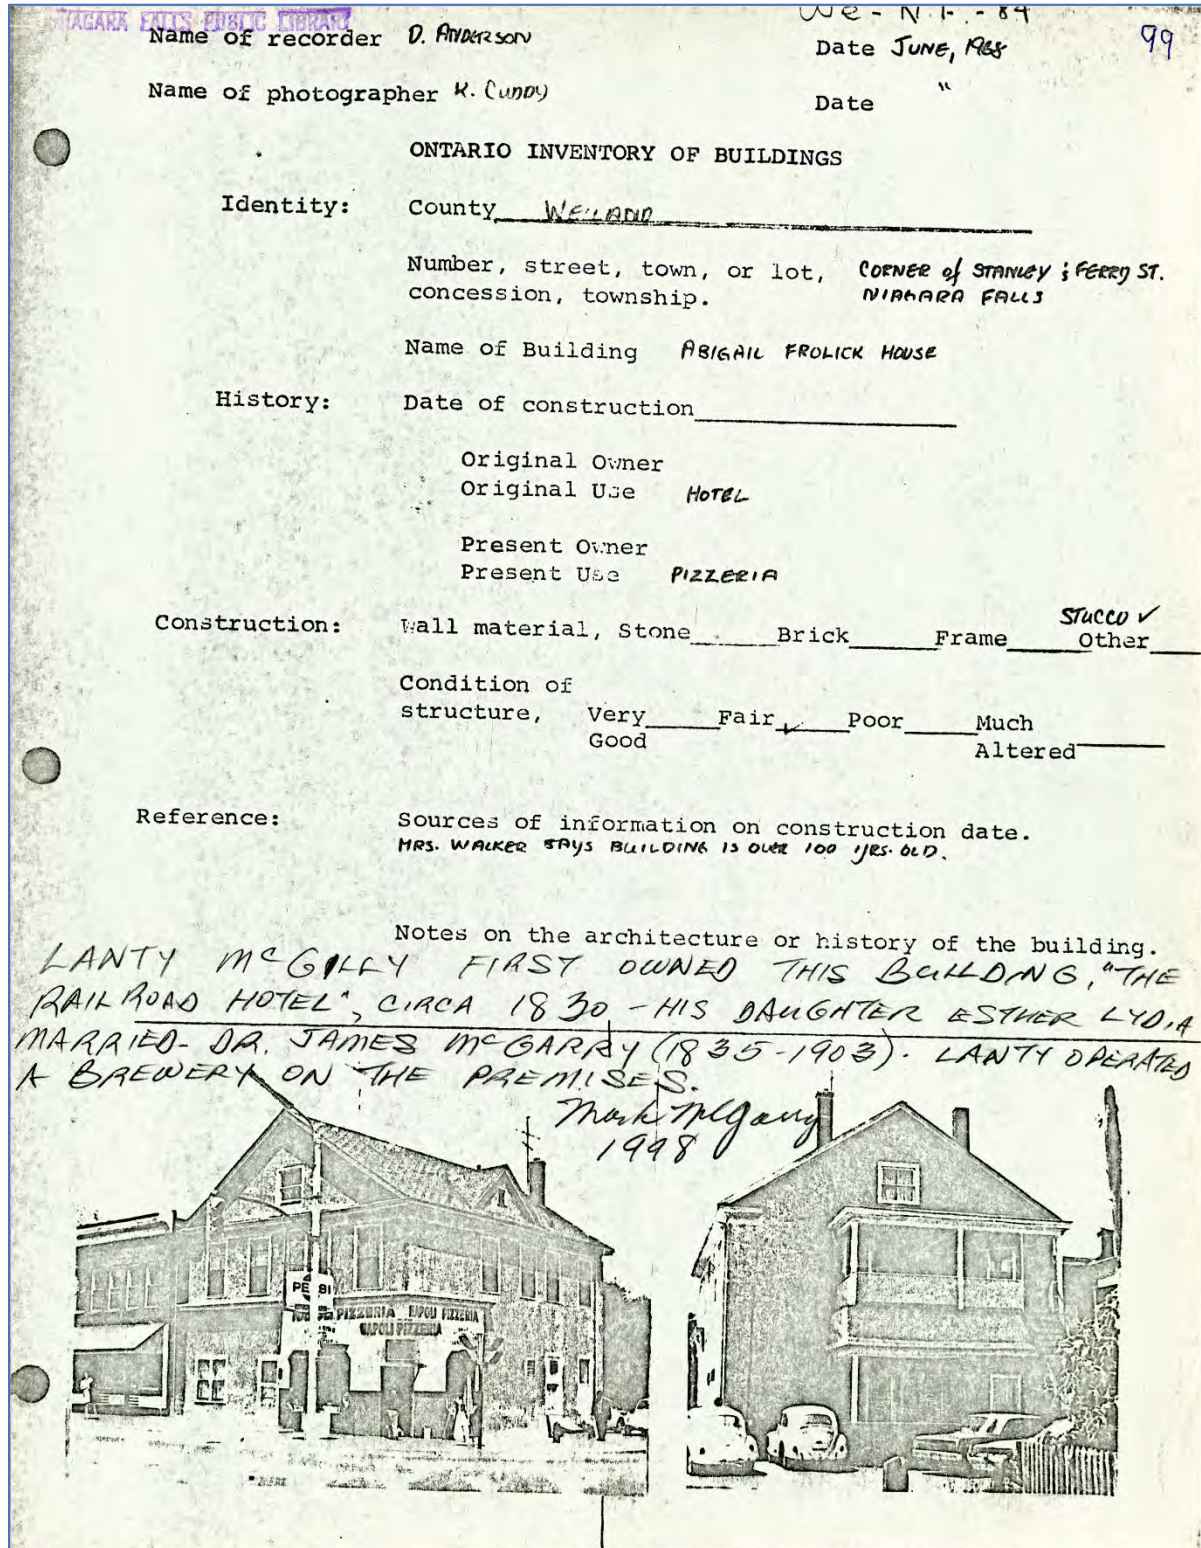 NIAGARA FALLS PUBLIC LIBRARY
We - N.F. - 84
99
Name of recorder D. ANDERSON
Date JUNE, 1968
Name of photographer K. CUDDY
Date "
ONTARIO INVENTORY OF BUILDINGS
Identity: County WELLAND
Number, street, town, or lot, CORNER of STANLEY & FERRY ST.
concession, township. NIAGARA FALLS
Name of Building ABIGAIL FROLICK HOUSE
History: Date of construction
Original Owner
Original Use HOTEL
Present Owner
Present Use PIZZERIA
STUCCO ✓
Construction: Wall material, Stone Brick Frame Other
Condition of
structure, Very Fair ✓ Poor Much
Good Altered
Reference: Sources of information on construction date.
MRS. WALKER SAYS BUILDING IS OVER 100 YRS. OLD.
Notes on the architecture or history of the building.
LANTY McGILLY FIRST OWNED THIS BUILDING, "THE
RAILROAD HOTEL", CIRCA 1830 - HIS DAUGHTER ESTHER LYDIA
MARRIED - DR. JAMES McGARRY (1835-1903). LANTY OPERATED
A BREWERY ON THE PREMISES.
Mark McGarry
1998
PIZZERIA NAPOLI PIZZERIA
NAPOLI PIZZERIA